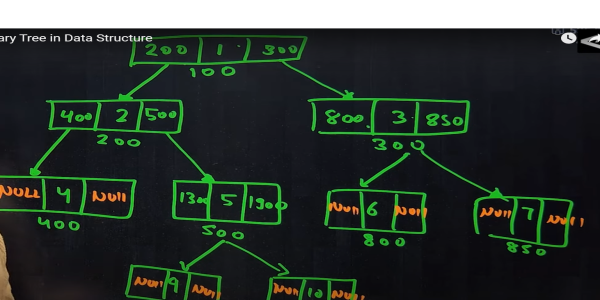 ary Tree in Data Structure
200 1 300
100
400 2 500
200
800 3 850
300
NULL 4 Null
400
1300 5 1900
500
Null 6 Null
800
Null 7 Null
850
Null 9 Null
Null 10 Null